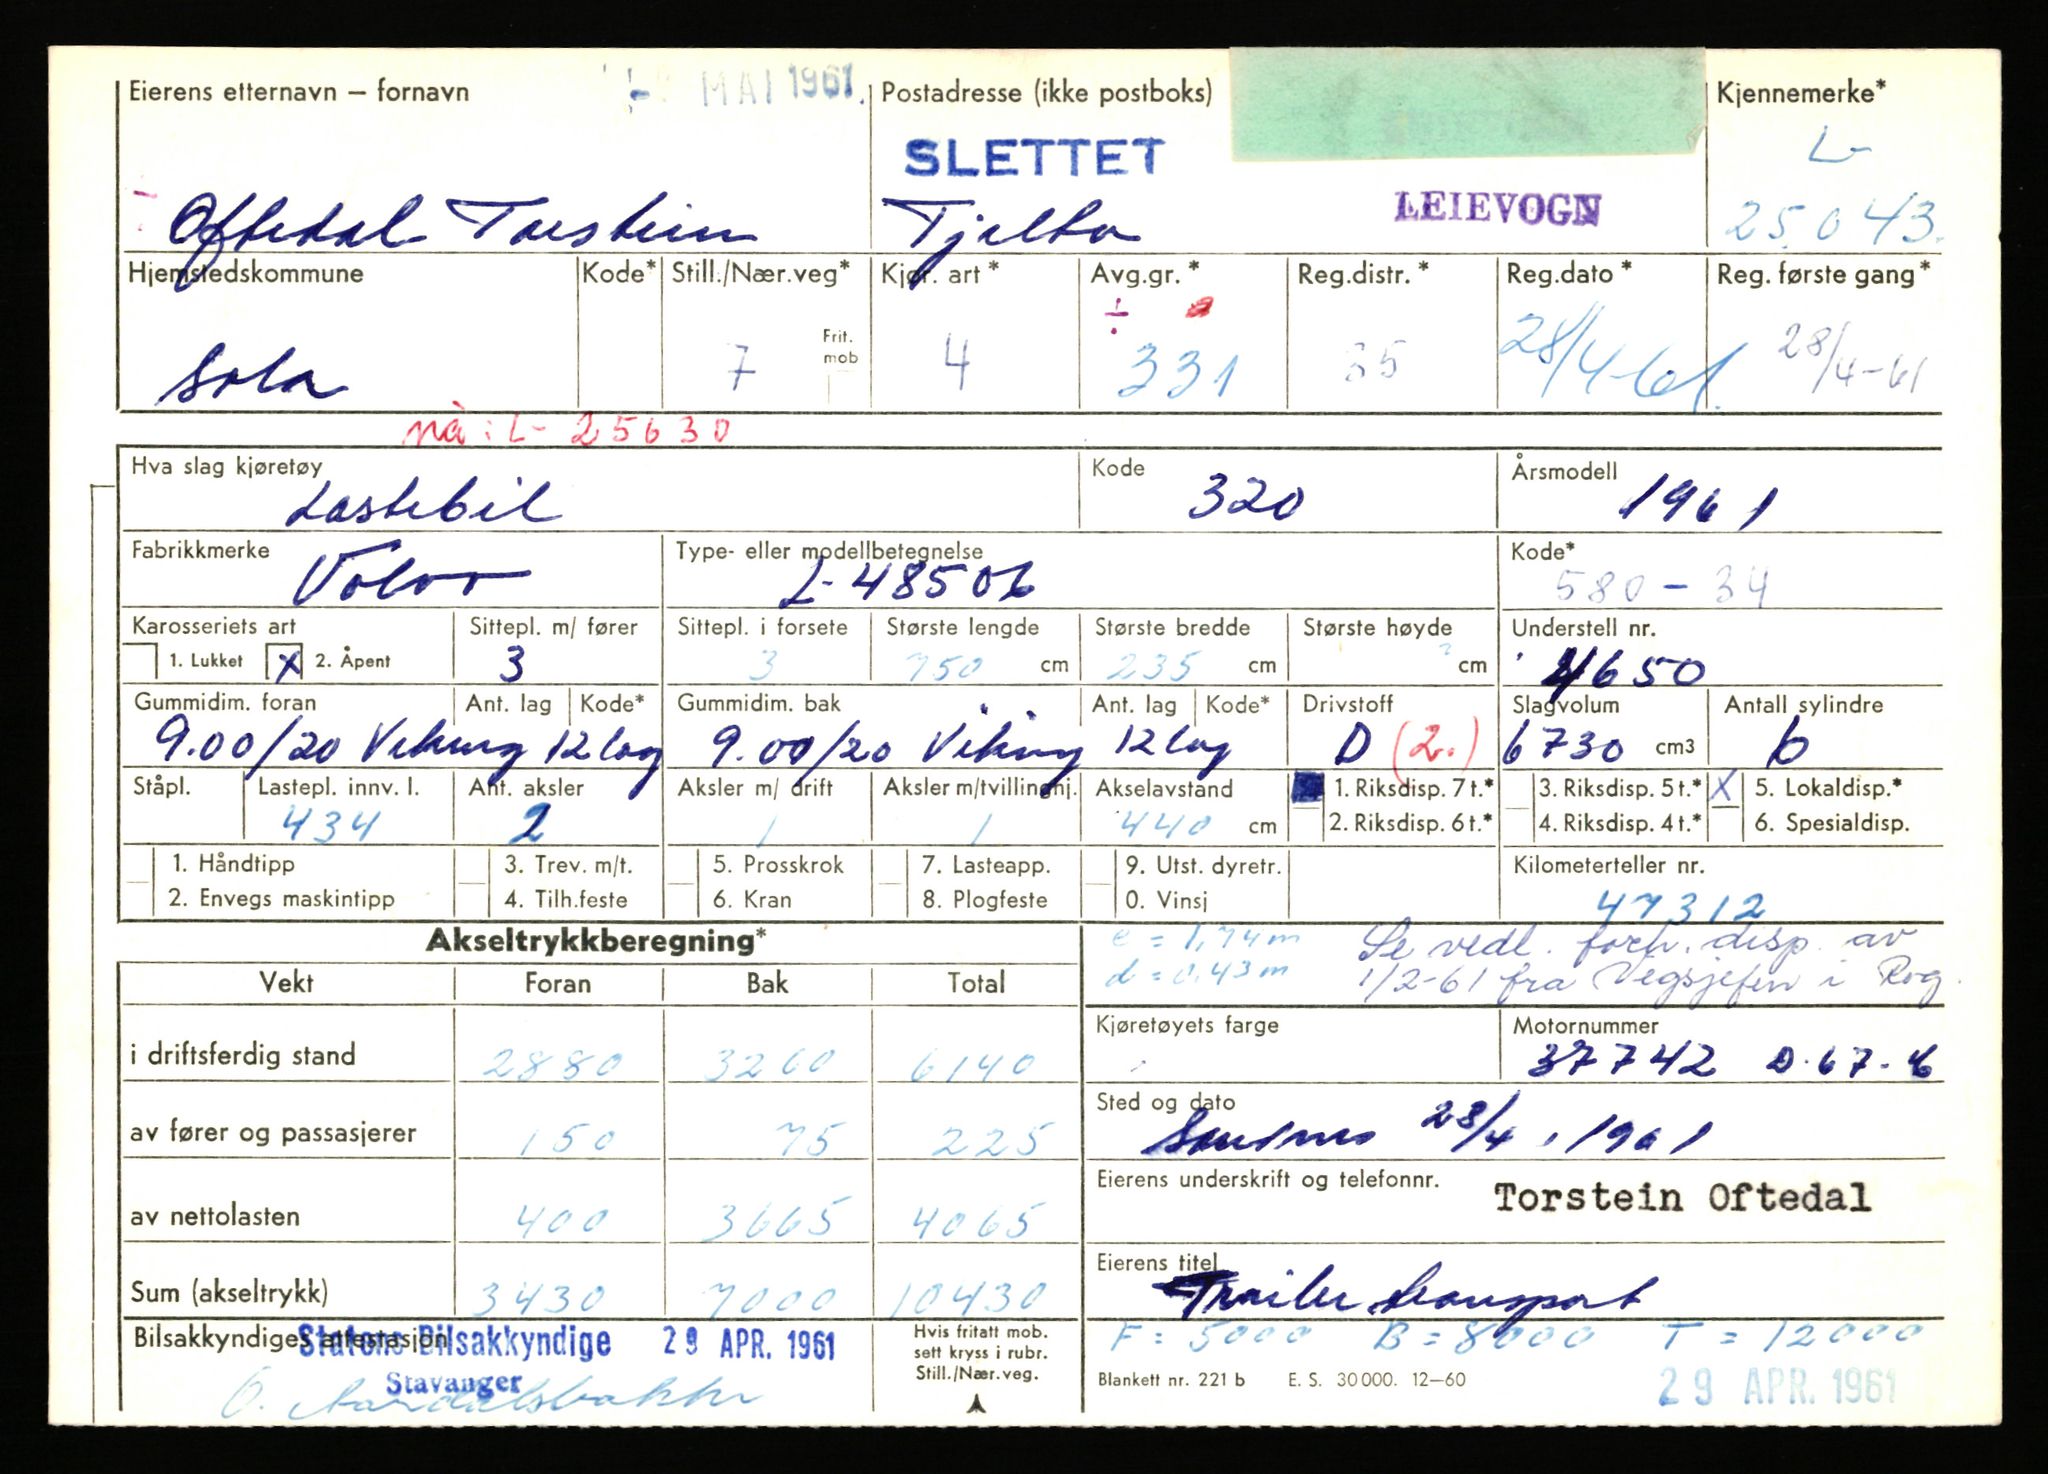 MAI 1961.
Eierens etternavn – fornavn
Postadresse (ikke postboks)
Kjennemerke*
SLETTET
L-
LEIEVOGN
Oftedal Torstein
Tjelta
25.043.
Hjemstedskommune
Kode*
Still./Nær.veg*
Kjør. art*
Avg.gr.*
Reg.distr.*
Reg.dato*
Reg. første gang*
÷
Sola
7
Frit. mob
4
331
35
28/4-61.
28/4-61
nå: L- 25630
Hva slag kjøretøy
Lastebil
Kode
320
Årsmodell
1961
Fabrikkmerke
Volvo
Type- eller modellbetegnelse
L-48506
Kode*
580-34
Karosseriets art
Sittepl. m/ fører
Sittepl. i forsete
Største lengde
Største bredde
Største høyde
Understell nr.
1. Lukket
X 2. Åpent
3
3
750 cm
235 cm
cm
4650
Gummidim. foran
Ant. lag
Kode*
Gummidim. bak
Ant. lag
Kode*
Drivstoff
Slagvolum
Antall sylindre
9.00/20 Viking 12 lag
9.00/20 Viking 12 lag
D (2.)
6730 cm3
6
Ståpl.
Lastepl. innv. l.
Ant. aksler
Aksler m/ drift
Aksler m/tvillinghj.
Akselavstand
1. Riksdisp. 7 t.*
3. Riksdisp. 5 t.*
X 5. Lokaldisp.*
434
2
1
1
440 cm
2. Riksdisp. 6 t.*
4. Riksdisp. 4 t.*
6. Spesialdisp.
1. Håndtipp
3. Trev. m/t.
5. Prosskrok
7. Lasteapp.
9. Utst. dyretr.
Kilometerteller nr.
2. Envegs maskintipp
4. Tilh.feste
6. Kran
8. Plogfeste
0. Vinsj
47312
Akseltrykkberegning*
e = 1,74 m
d = 0,43 m
Se vedl. forh. disp. av
1/2-61 fra Vegsjefen i Rog.
Vekt
Foran
Bak
Total
i driftsferdig stand
2880
3260
6140
Kjøretøyets farge
Motornummer
37742 D.67-6
av fører og passasjerer
150
75
225
Sted og dato
Sandnes 28/4, 1961
av nettolasten
400
3665
4065
Eierens underskrift og telefonnr.
Torstein Oftedal
Sum (akseltrykk)
3430
7000
10430
Eierens titel
Trailer transport
Bilsakkyndiges attestasjon
Statens Bilsakkyndige 29 APR. 1961
Stavanger
Hvis fritatt mob.
sett kryss i rubr.
Still./Nær.veg.
F = 5000 B = 8000 T = 12000
Blankett nr. 221 b E. S. 30 000. 12–60
29 APR. 1961